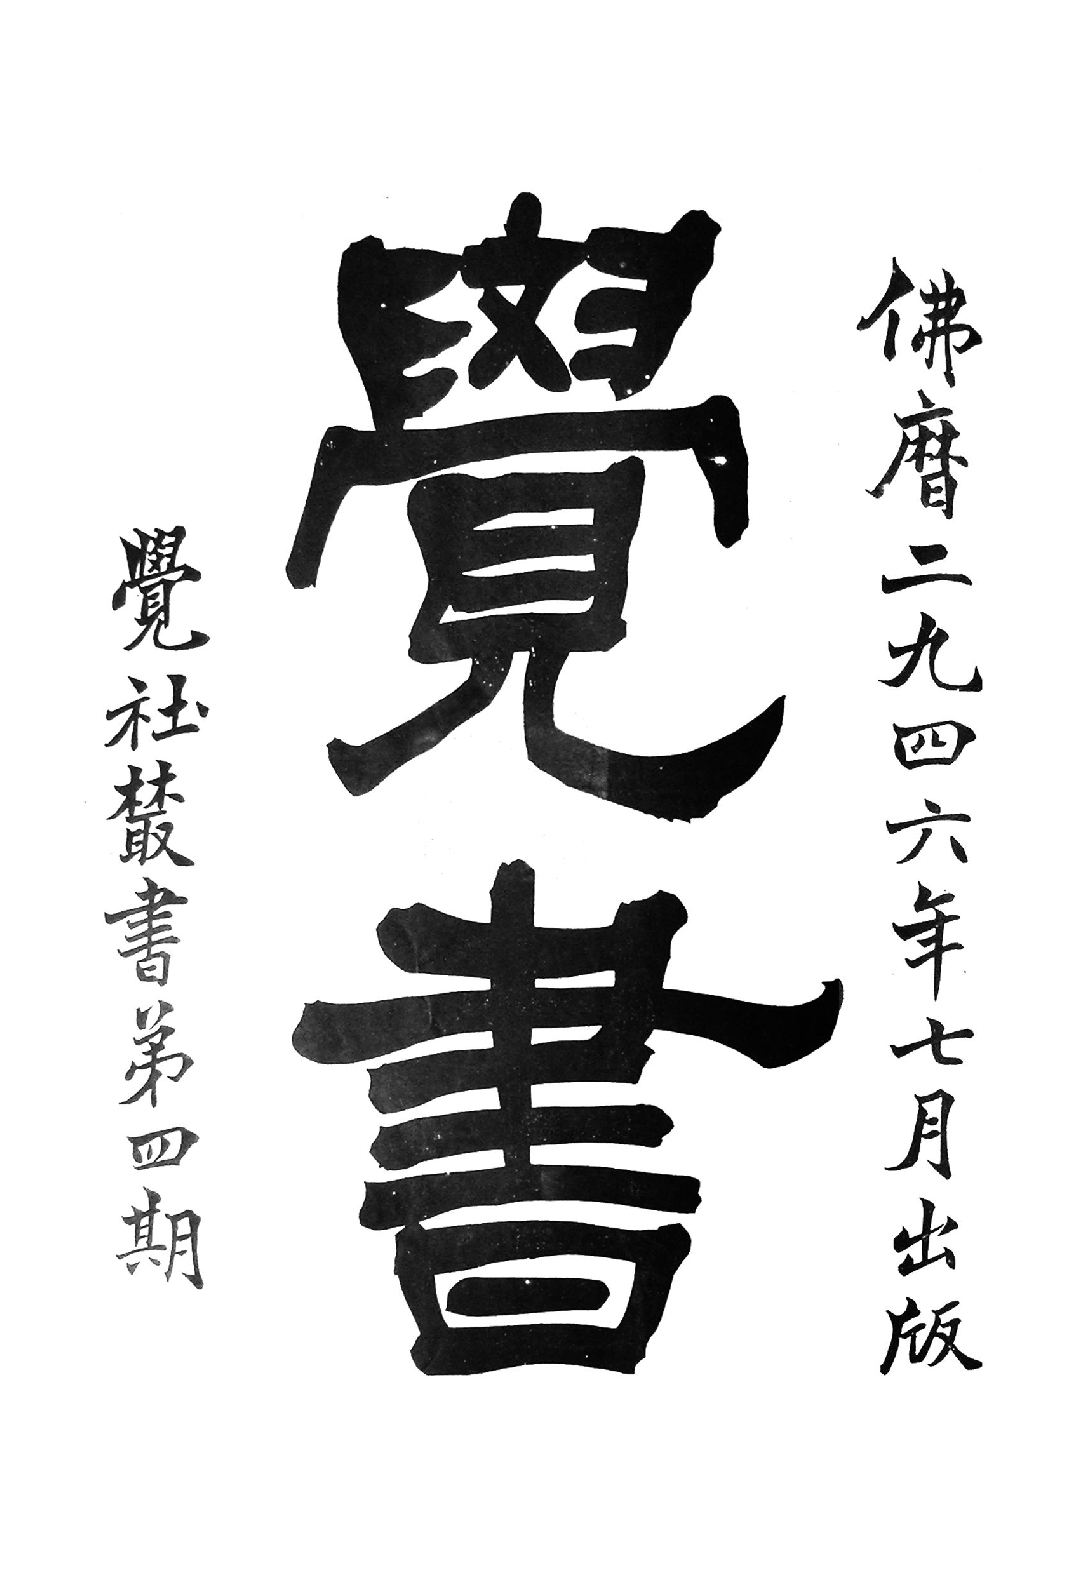 佛曆二九四六年七月出版
覺書
覺社叢書第四期